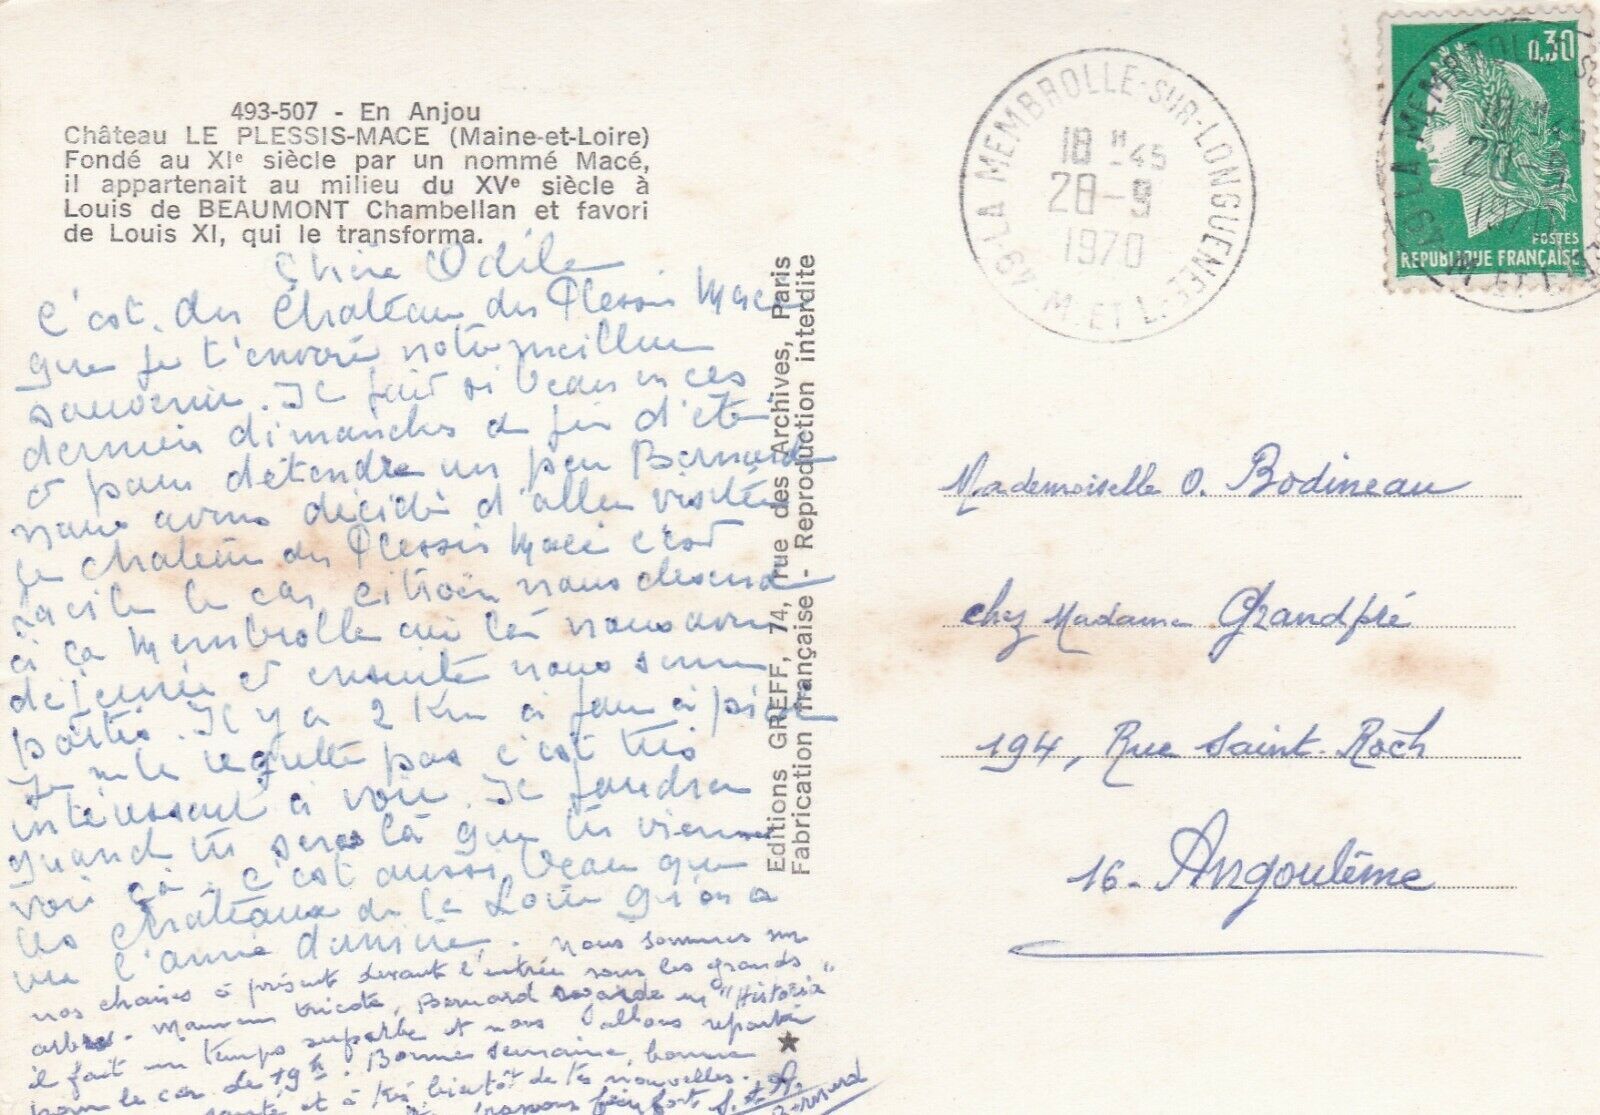 493-507 - En Anjou
Château LE PLESSIS-MACE (Maine-et-Loire)
Fondé au XIe siècle par un nommé Macé,
il appartenait au milieu du XVe siècle à
Louis de BEAUMONT Chambellan et favori
de Louis XI, qui le transforma.
Chère Odile
C'est du Château du Plessis Macé
que je t'envoie notre meilleur
souvenir. Il fait si beau en ces
derniers dimanches de fin d'été
et pour détendre un peu Bernard
nous avons décidé d'aller visiter
le Château du Plessis Macé c'est
facile le car citroën nous descend
à la Membrolle où là nous avons
déjeuné et ensuite nous sommes
partis. Il y a 2 Km à faire à pied
Je ne le regrette pas c'est très
intéressant à voir. Il faudra
quand tu seras là que tu viennes
voir ça. c'est aussi beau que
les châteaux de la Loire qu'on a
vu l'année dernière. Nous sommes sur
nos chaises à présent devant l'entrée sous les grands
arbres. Maman tricote, Bernard regarde un "Historia"
il fait un temps superbe et nous allons repartir
pour le car de 19h. Bonne semaine, bonne
santé et à très bientôt de tes nouvelles.
bien fort
Bernard
Editions GREFF, 74, rue des Archives, Paris
Fabrication française - Reproduction interdite
49-LA MEMBROLLE-SUR-LONGUENEE
M. ET L.
18 H 45
28-9
1970
0,30
POSTES
REPUBLIQUE FRANÇAISE
Mademoiselle O. Bodineau
chez Madame Grandpré
194, Rue Saint-Roch
16- Angoulême